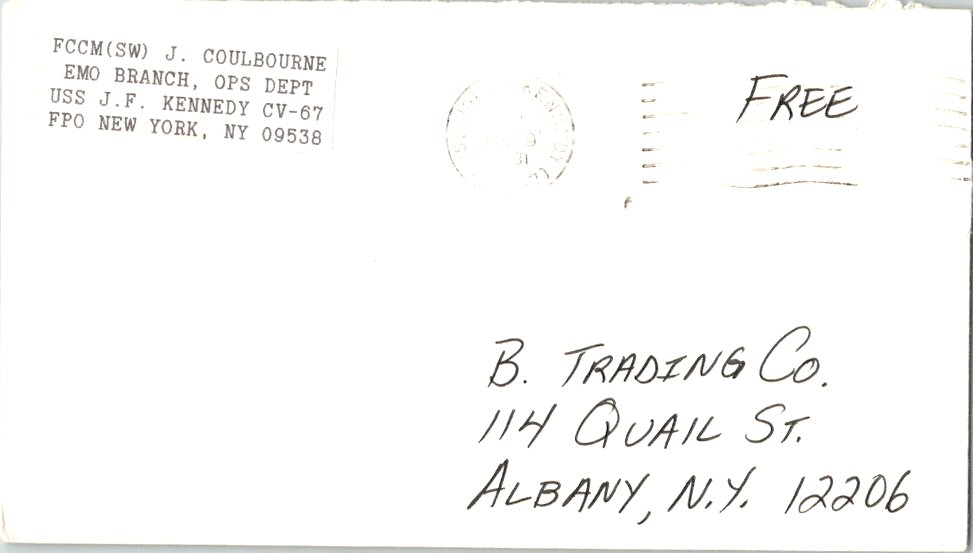 FCCM(SW) J. COULBOURNE
EMO BRANCH, OPS DEPT
USS J.F. KENNEDY CV-67
FPO NEW YORK, NY 09538
FREE
B. TRADING CO.
114 QUAIL ST.
ALBANY, N.Y. 12206